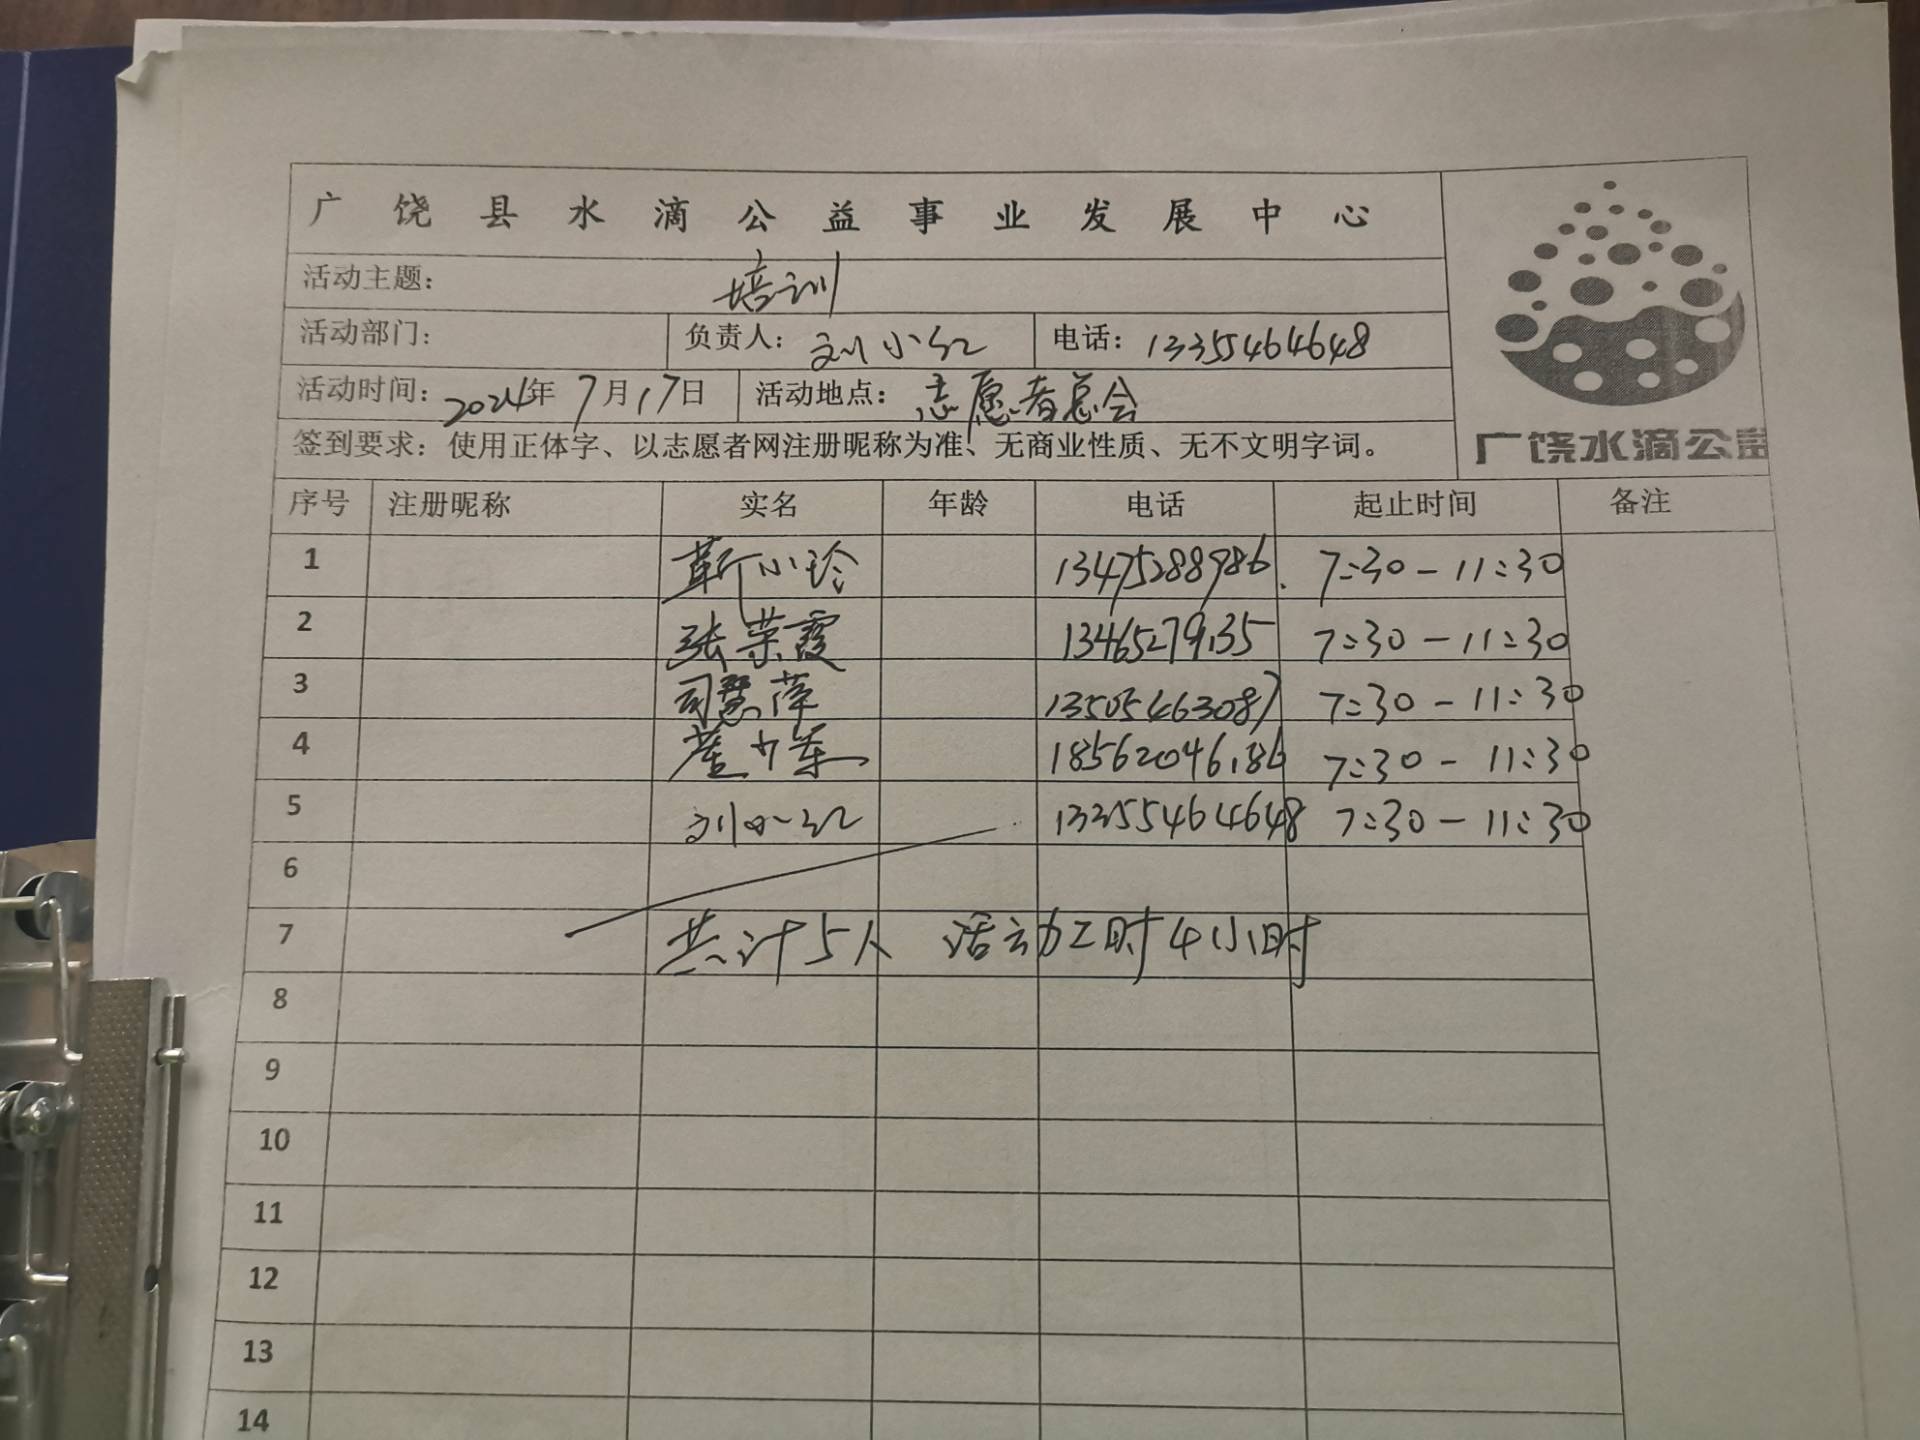 广饶县水滴公益事业发展中心
活动主题： 培训
活动部门： 负责人：刘小红 电话：13355464648
活动时间：2024年7月17日 活动地点：志愿者总会
签到要求：使用正体字、以志愿者网注册昵称为准、无商业性质、无不文明字词。
广饶水滴公益
序号 注册昵称 实名 年龄 电话 起止时间 备注
1 靳小玲 13475288986 7:30-11:30
2 张荣霞 13465279135 7:30-11:30
3 司慧萍 13505463087 7:30-11:30
4 18562046186 7:30-11:30
5 刘小红 13355464648 7:30-11:30
6
7 共计5人 活动工时4小时
8
9
10
11
12
13
14